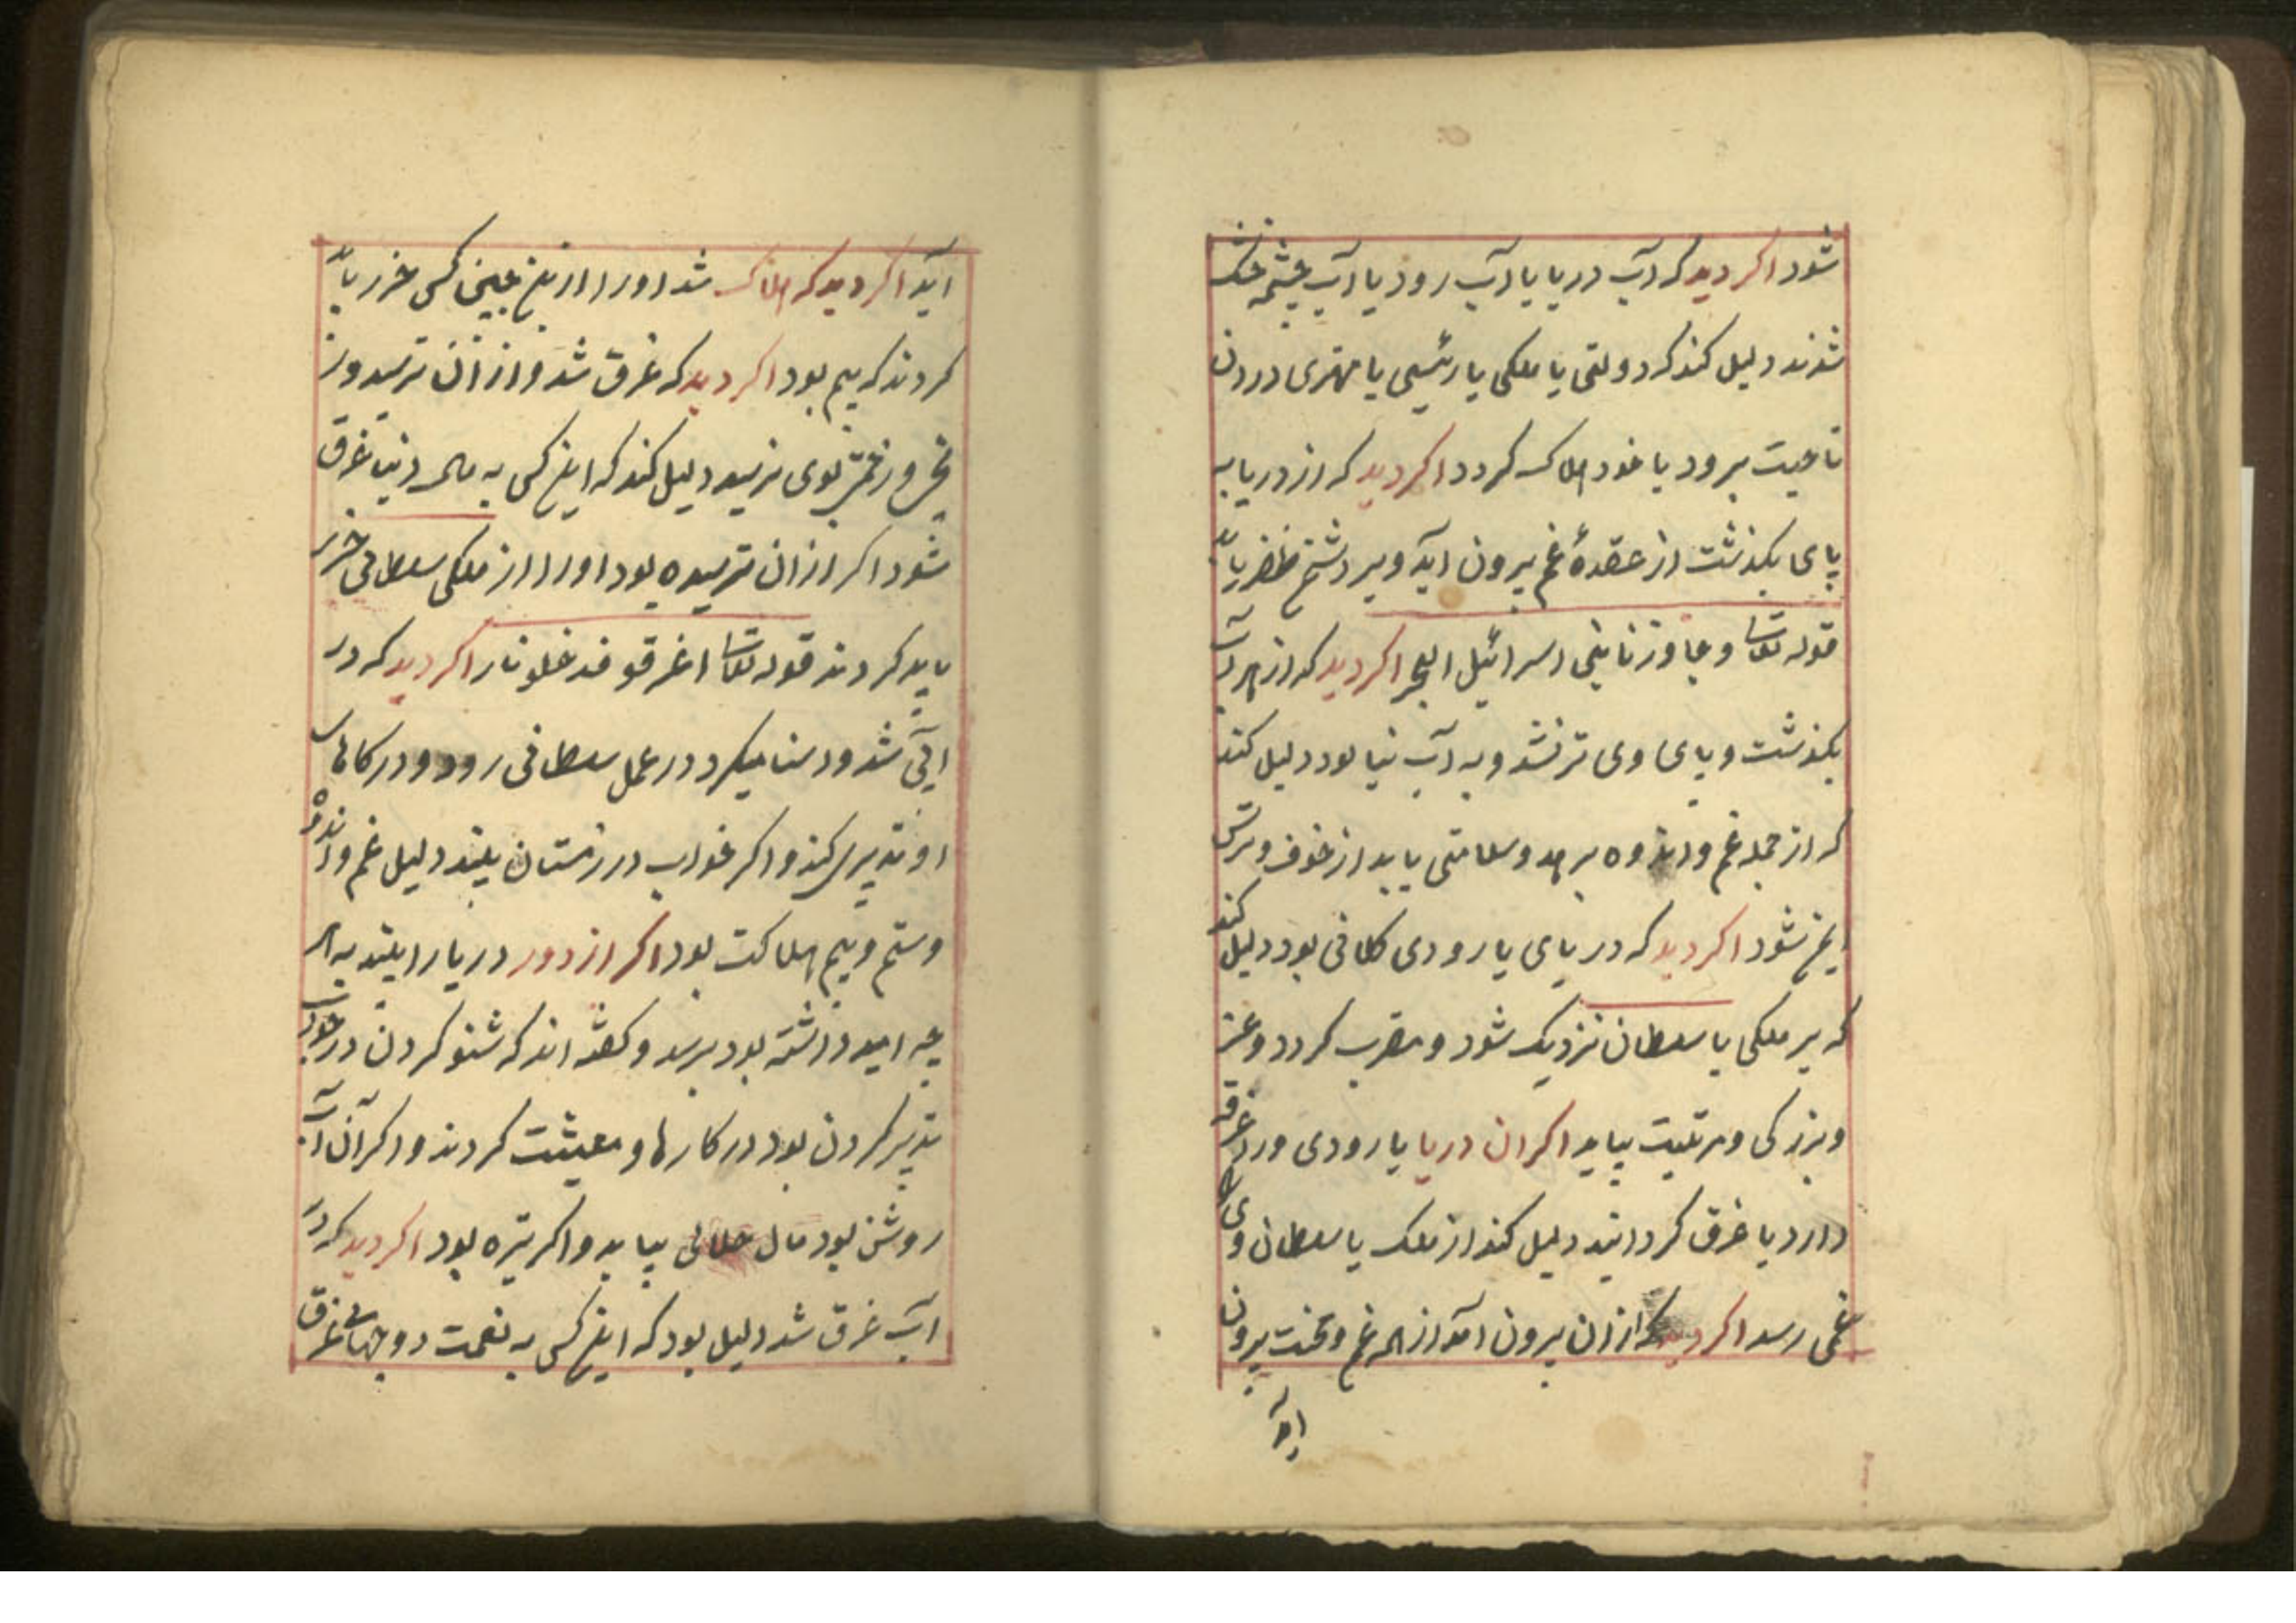 شود اکر دید که آب دریا یا آب رود یا آب چشمه خشک
شدند دلیل کند که دولتی یا ملکی یا رئیسی یا مهتری در دن
ناحیت برود یا خود هلاک کردد اکر دید که از دریا به
پای بکذشت از عقدهٔ غم بیرون آید و بر دشمن ظفر یابد
قوله تعالی و جاوزنا ببنی اسرائیل البحر اکر دید که از هر آب
بکذشت و پای وی تر نشد و به آب نیالود دلیل کند
که از جمله غم و اندوه برهد و سلامتی یابد از خوف و ترس
ایمن شود اکر دید که دریای یا رودی کلانی بود دلیل کند
که بر ملکی یا سلطان نزدیک شود و مقرب کردد و عز
و بزرکی و مرتبت بیابد اکر ان دریا یا رودی ورا غرقه
دارد یا غرق کردانید دلیل کند از ملک یا سلطان ویرا
غمی رسد اکر دید که ازان بیرون آمد از همه غم و محنت بیرون
آید
آید اکر دید که هلاک شد او را از این چنین کسی ضرر یابد
کردند که بیم بود اکر دید که غرق شد و از آن ترسید و ز
بوی نرسید دلیل کند که این کس به مال دنیا غرق
شود اکر ازان ترسیده بود او را از ملکی سلطانی ضرر
یابد کردند قوله تعالی اغرقو فدخلو نار اکر دید که در
آبی شد و اشنا میکرد در عمل سلطانی رود و در کارهای
او تدبیر کند و اکر خواب در زمستان بیند دلیل غم و اندوه
و ستم و بیم هلاکت بود اکر از دور دریا را بیند به هر
چه امید داشته بود برسد و کفته اند که شنو کردن در خواب
تدبیر کردن بود در کارها و معیشت کردند و اکر آن آب
روشن بود مال حلالی بیابد و اکر تیره بود اکر دید که در
آب غرق شد دلیل بود که این کس به نعمت دو جهانی غرق